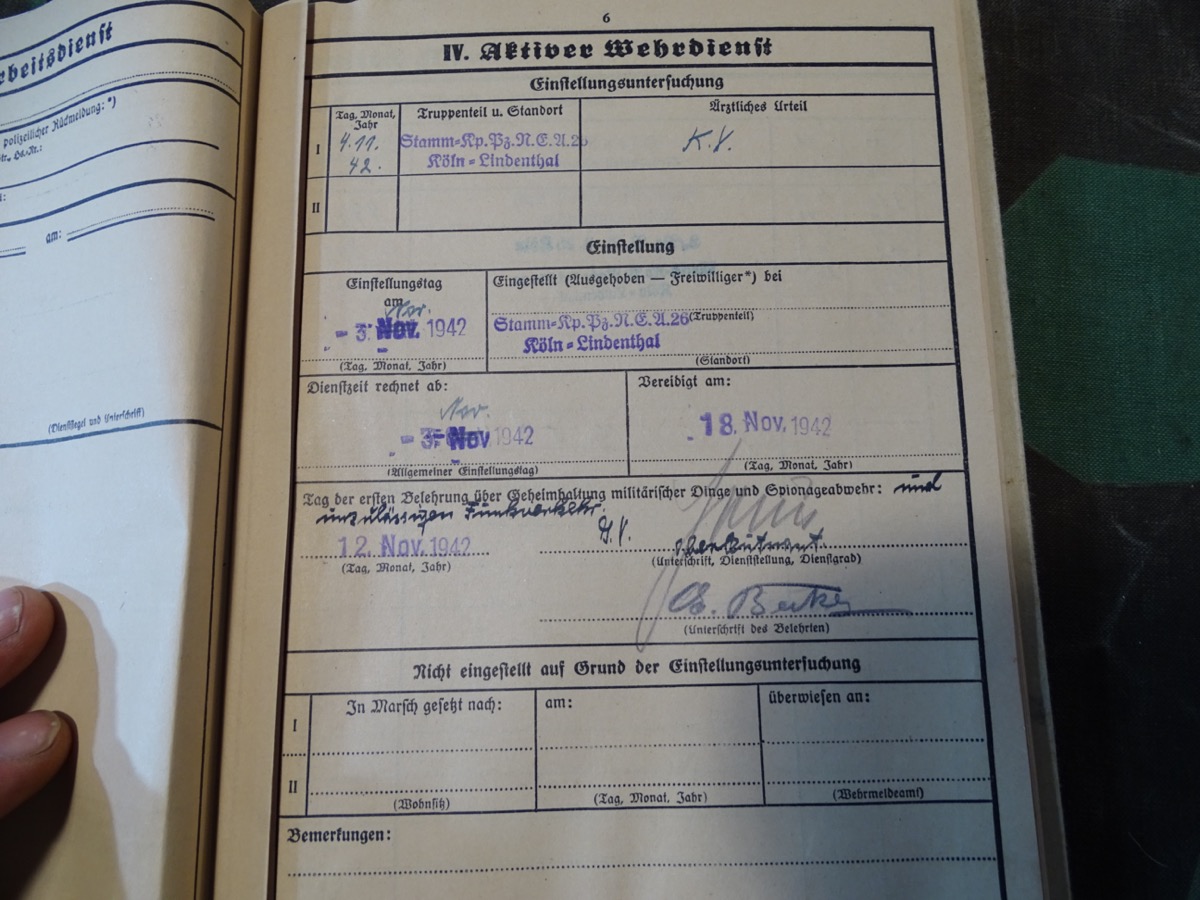 rbeitsdienst
polizeilicher Rückmeldung: *)
am:
(Dienstsiegel und Unterschrift)
6
IV. Aktiver Wehrdienst
Einstellungsuntersuchung
Tag, Monat, Jahr
Truppenteil u. Standort
Ärztliches Urteil
I
4.11.
42.
Stamm-Kp.Pz.N.E.A.26
Köln-Lindenthal
K.V.
II
Einstellung
Einstellungstag
am
Nov.
- 3. Nov. 1942
(Tag, Monat, Jahr)
Eingestellt (Ausgehoben — Freiwilliger*) bei
Stamm-Kp.Pz.N.E.A.26 (Truppenteil)
Köln-Lindenthal
(Standort)
Dienstzeit rechnet ab:
Nov.
- 3. Nov 1942
(Allgemeiner Einstellungstag)
Vereidigt am:
18. Nov. 1942
(Tag, Monat, Jahr)
Tag der ersten Belehrung über Geheimhaltung militärischer Dinge und Spionageabwehr: und
unzulässigen Funkverkehr.
12. Nov. 1942
(Tag, Monat, Jahr)
Oberleutnant
(Unterschrift, Dienststellung, Dienstgrad)
Becker
(Unterschrift des Belehrten)
Nicht eingestellt auf Grund der Einstellungsuntersuchung
I
In Marsch gesetzt nach:
am:
überwiesen an:
II
(Wohnsitz)
(Tag, Monat, Jahr)
(Wehrmeldeamt)
Bemerkungen: